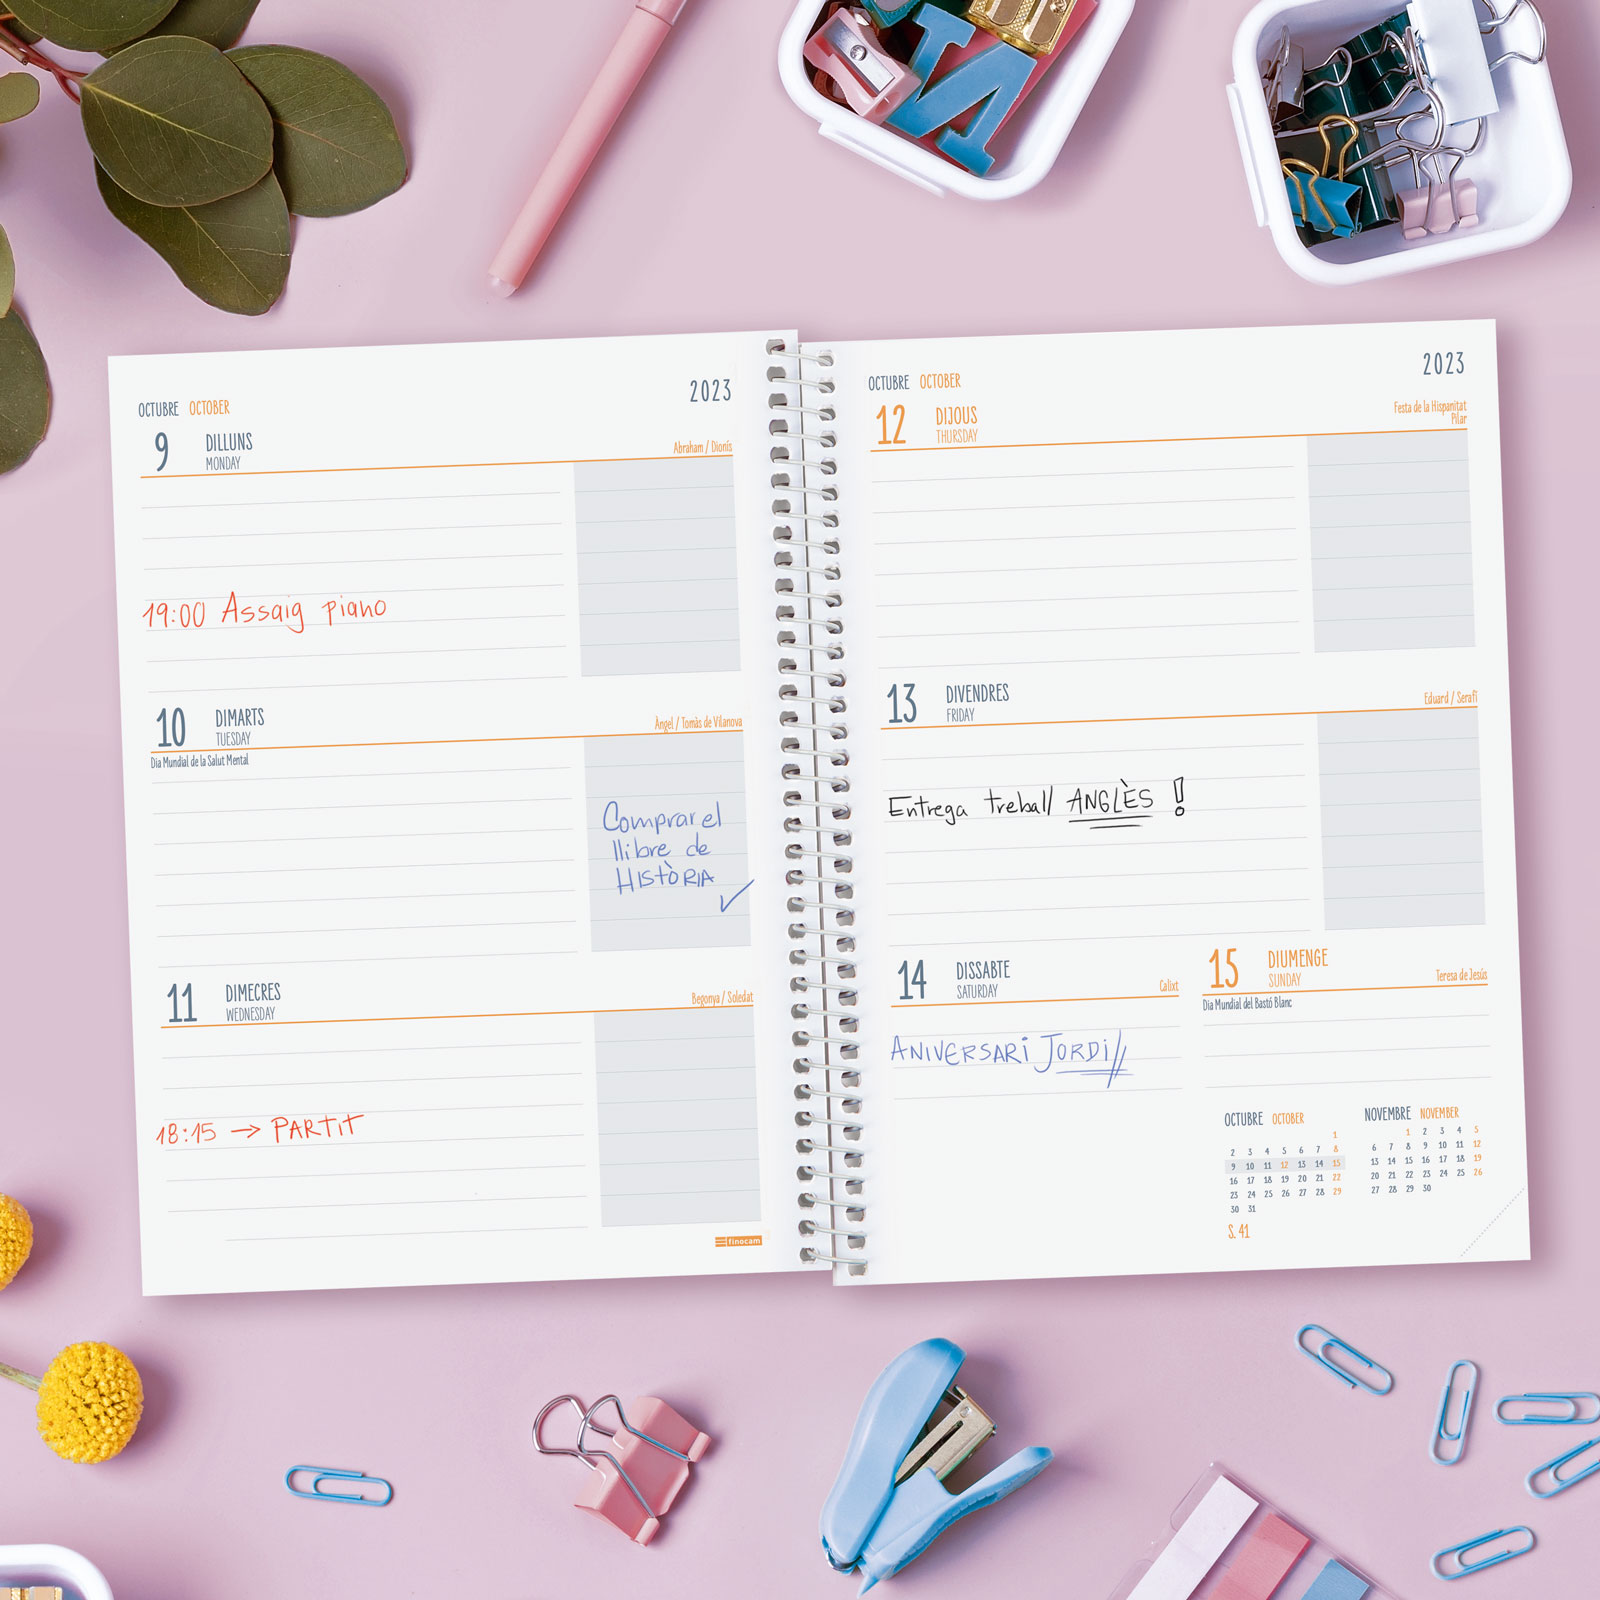 OCTUBRE OCTOBER 2023
9 DILLUNS
MONDAY
Abraham / Dionís
19:00 Assaig piano
10 DIMARTS
TUESDAY
Àngel / Tomàs de Vilanova
Dia Mundial de la Salut Mental
Comprar el
llibre de
HISTÒRIA
11 DIMECRES
WEDNESDAY
Begonya / Soledat
18:15 → PARTIT
finocam
OCTUBRE OCTOBER 2023
12 DIJOUS
THURSDAY
Festa de la Hispanitat
Pilar
13 DIVENDRES
FRIDAY
Eduard / Serafí
Entrega treball ANGLÈS !
14 DISSABTE
SATURDAY
Calixt
ANIVERSARI JORDI//
15 DIUMENGE
SUNDAY
Teresa de Jesús
Dia Mundial del Bastó Blanc
OCTUBRE OCTOBER
1
2 3 4 5 6 7 8
9 10 11 12 13 14 15
16 17 18 19 20 21 22
23 24 25 26 27 28 29
30 31
S. 41
NOVEMBRE NOVEMBER
1 2 3 4 5
6 7 8 9 10 11 12
13 14 15 16 17 18 19
20 21 22 23 24 25 26
27 28 29 30